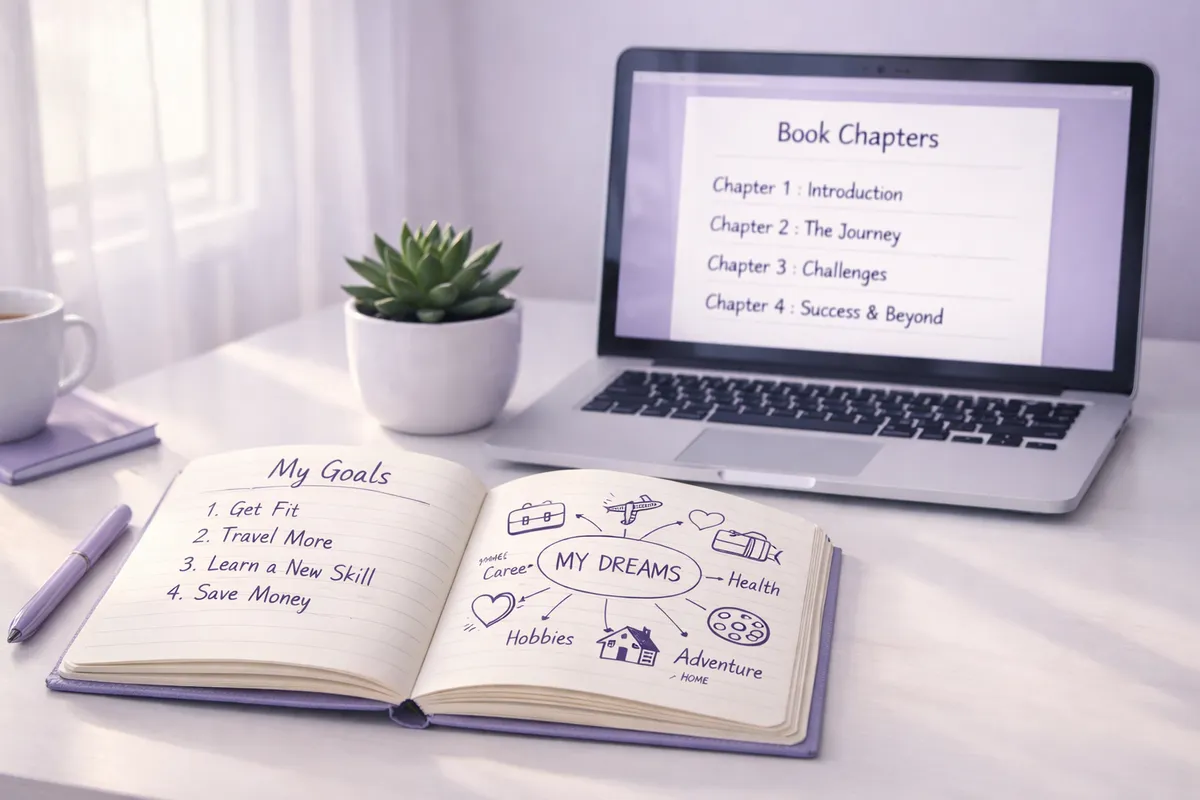 Book Chapters
Chapter 1 : Introduction
Chapter 2 : The Journey
Chapter 3 : Challenges
Chapter 4 : Success & Beyond
My Goals
1. Get Fit
2. Travel More
3. Learn a New Skill
4. Save Money
MY DREAMS
Caree
Health
Hobbies
Adventure
HOME